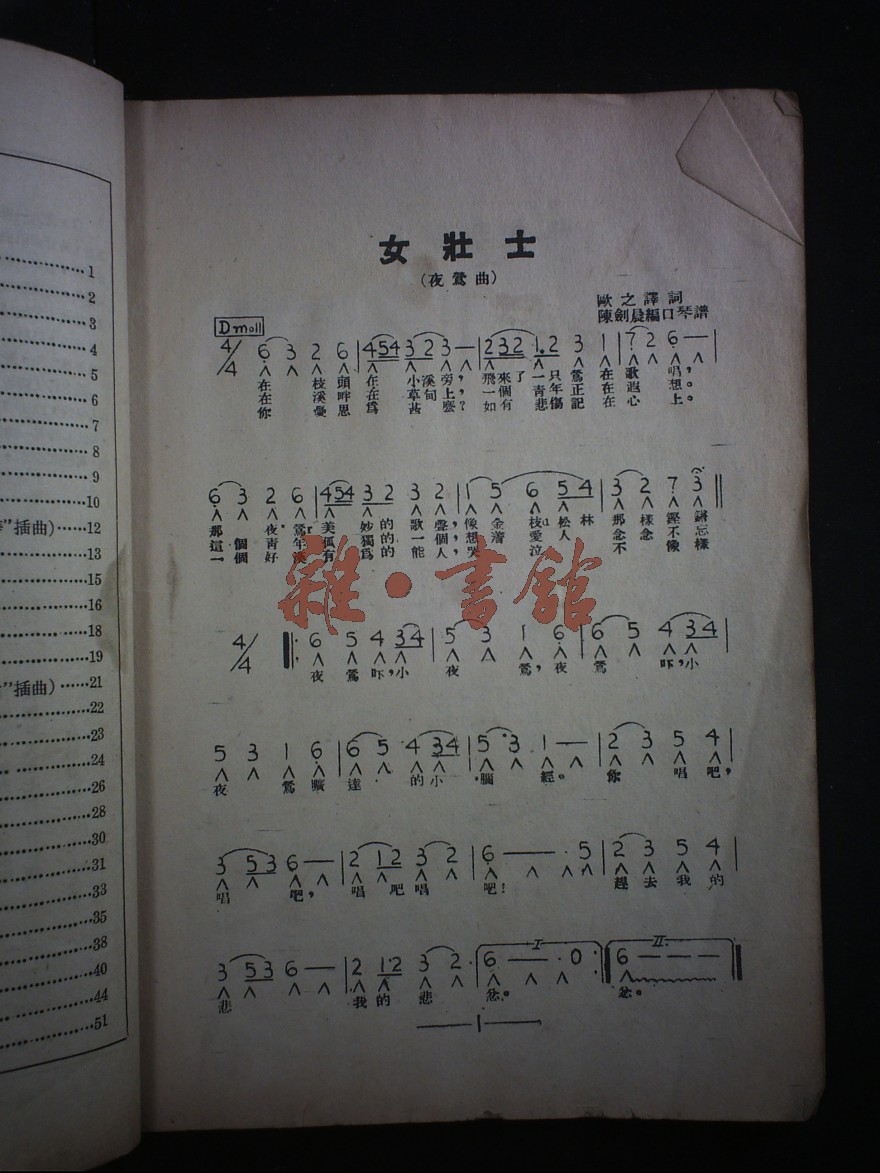 1
2
3
4
5
6
7
8
9
10
”插曲) 12
13
15
16
18
19
”插曲) 21
22
23
24
26
28
30
31
33
35
38
40
44
51
女壯士
(夜鶯曲)
歐之譯詞
陳劍晨編口琴譜
D moll
4/4 6 3 2 6 | 4 54 3 2 3 — | 2 3 2 1. 2 3 1 | 7 2 6 — |
在枝頭在小溪旁,飛來了一只鶯在歌唱。
在溪畔在草甸上,一個青年正在遐想。
你憂思為甚麼?如有悲傷記在心上。
6 3 2 6 | 4 54 3 2 3 2 | 1 5 6 5 4 | 3 2 7 3 ‖
那個夜鶯美妙的歌聲,像金枝松林那樣鏗鏘
這個青年孤獨的一個人,想着愛人念念不忘
一個好漢有為的能人,哭泣不像樣
雜·書館
4/4 ‖: 6 5 4 34 | 5 3 1 6 | 6 5 4 34 |
夜鶯吓,小夜鶯,夜鶯吓,小
5 3 1 6 | 6 5 4 34 | 5 3 1 — | 2 3 5 4 |
夜鶯曠達的小腦經。你唱吧,
3 53 6 — | 2 12 3 2 | 6 — — 5 | 2 3 5 4 |
唱吧,唱吧唱吧!趕去我的
3 53 6 — | 2 12 3 2 | I 6 — — 0 :‖ II 6 — — — ‖
悲我的悲忿。忿。
1